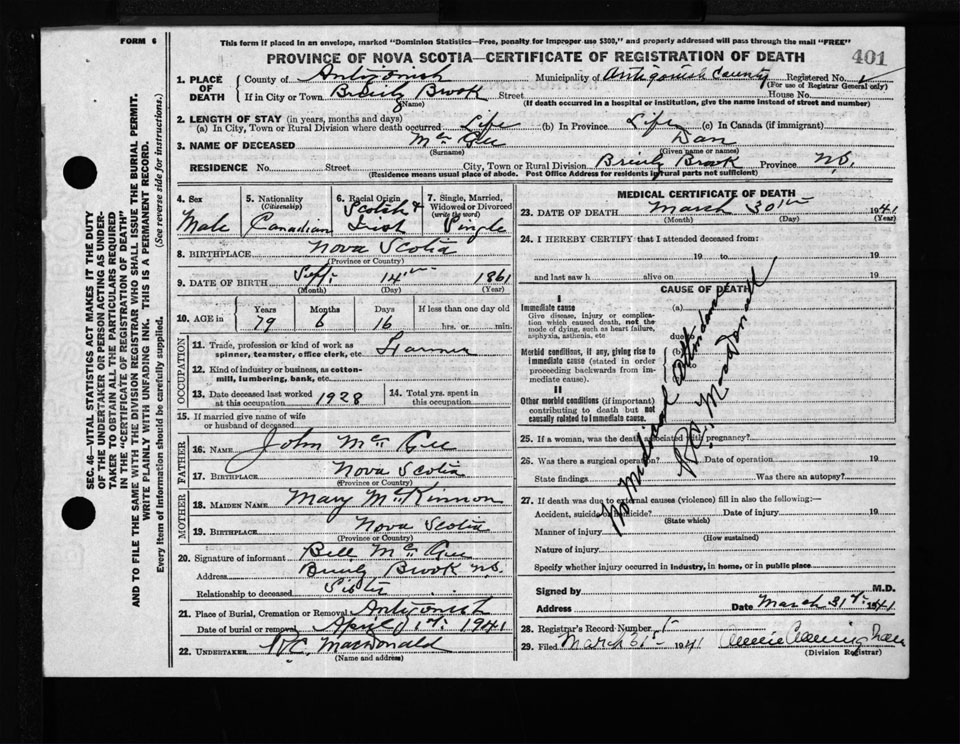 FORM 6
This form if placed in an envelope, marked "Dominion Statistics—Free, penalty for improper use $300," and properly addressed will pass through the mail "FREE"
PROVINCE OF NOVA SCOTIA—CERTIFICATE OF REGISTRATION OF DEATH
401
1. PLACE OF DEATH
County of Antigonish Municipality of Antigonish County Registered No.
(For use of Registrar General only)
If in City or Town Brierly Brook Street House No.
(Name) (If death occurred in a hospital or institution, give the name instead of street and number)
2. LENGTH OF STAY (in years, months and days)
(a) In City, Town or Rural Division where death occurred Life (b) In Province Life (c) In Canada (if immigrant)
3. NAME OF DECEASED McGee Dan
(Surname) (Given name or names)
RESIDENCE No. Street City, Town or Rural Division Brierly Brook Province N.S.
(Residence means usual place of abode. Post Office Address for residents in rural parts not sufficient)
4. Sex
Male
5. Nationality
(Citizenship)
Canadian
6. Racial Origin
Scotish & Irish
7. Single, Married, Widowed or Divorced
(write the word)
Single
8. BIRTHPLACE Nova Scotia
(Province or Country)
9. DATE OF BIRTH Sept. 14th 1861
(Month) (Day) (Year)
10. AGE in
Years Months Days If less than one day old
79 6 16 hrs. or min.
OCCUPATION
11. Trade, profession or kind of work as
spinner, teamster, office clerk, etc. Farmer
12. Kind of industry or business, as cotton-
mill, lumbering, bank, etc.
13. Date deceased last worked at this occupation 1928
14. Total yrs. spent in this occupation
15. If married give name of wife
or husband of deceased
FATHER
16. NAME John McGee
17. BIRTHPLACE Nova Scotia
(Province or Country)
MOTHER
18. MAIDEN NAME Mary McKinnon
19. BIRTHPLACE Nova Scotia
(Province or Country)
20. Signature of informant Bell McGee
Address Brierly Brook N.S.
Relationship to deceased Sister
21. Place of Burial, Cremation or Removal Antigonish
Date of burial or removal April 1st 1941
22. UNDERTAKER R.C. MacDonald
(Name and address)
MEDICAL CERTIFICATE OF DEATH
23. DATE OF DEATH March 30th 1941
(Month) (Day) (Year)
24. I HEREBY CERTIFY that I attended deceased from:
19 to 19
and last saw h alive on 19
CAUSE OF DEATH
I
Immediate cause (a)
Give disease, injury or complica-
tion which caused death, not the
mode of dying, such as heart failure,
asphyxia, asthenia, etc. due to
Morbid conditions, if any, giving rise to (b)
immediate cause (stated in order
proceeding backwards from im-
mediate cause). due to
II
Other morbid conditions (if important)
contributing to death but not
causally related to immediate cause.
No Medical Attendance
R.C. MacDonald
25. If a woman, was the death associated with pregnancy?
26. Was there a surgical operation? Date of operation 19
State findings Was there an autopsy?
27. If death was due to external causes (violence) fill in also the following:—
Accident, suicide or homicide? Date of injury 19
(State which)
Manner of injury
(How sustained)
Nature of injury
Specify whether injury occurred in industry, in home, or in public place
Signed by M.D.
Address Date March 31st 1941
28. Registrar's Record Number 1
29. Filed March 31st 1941 Annie Cunningham
(Division Registrar)
SEC. 46—VITAL STATISTICS ACT MAKES IT THE DUTY
OF THE UNDERTAKER OR PERSON ACTING AS UNDER-
TAKER TO OBTAIN ALL THE PARTICULARS REQUIRED
IN THE "CERTIFICATE OF REGISTRATION OF DEATH"
AND TO FILE THE SAME WITH THE DIVISION REGISTRAR WHO SHALL ISSUE THE BURIAL PERMIT.
WRITE PLAINLY WITH UNFADING INK. THIS IS A PERMANENT RECORD.
Every item of information should be carefully supplied. (See reverse side for instructions.)